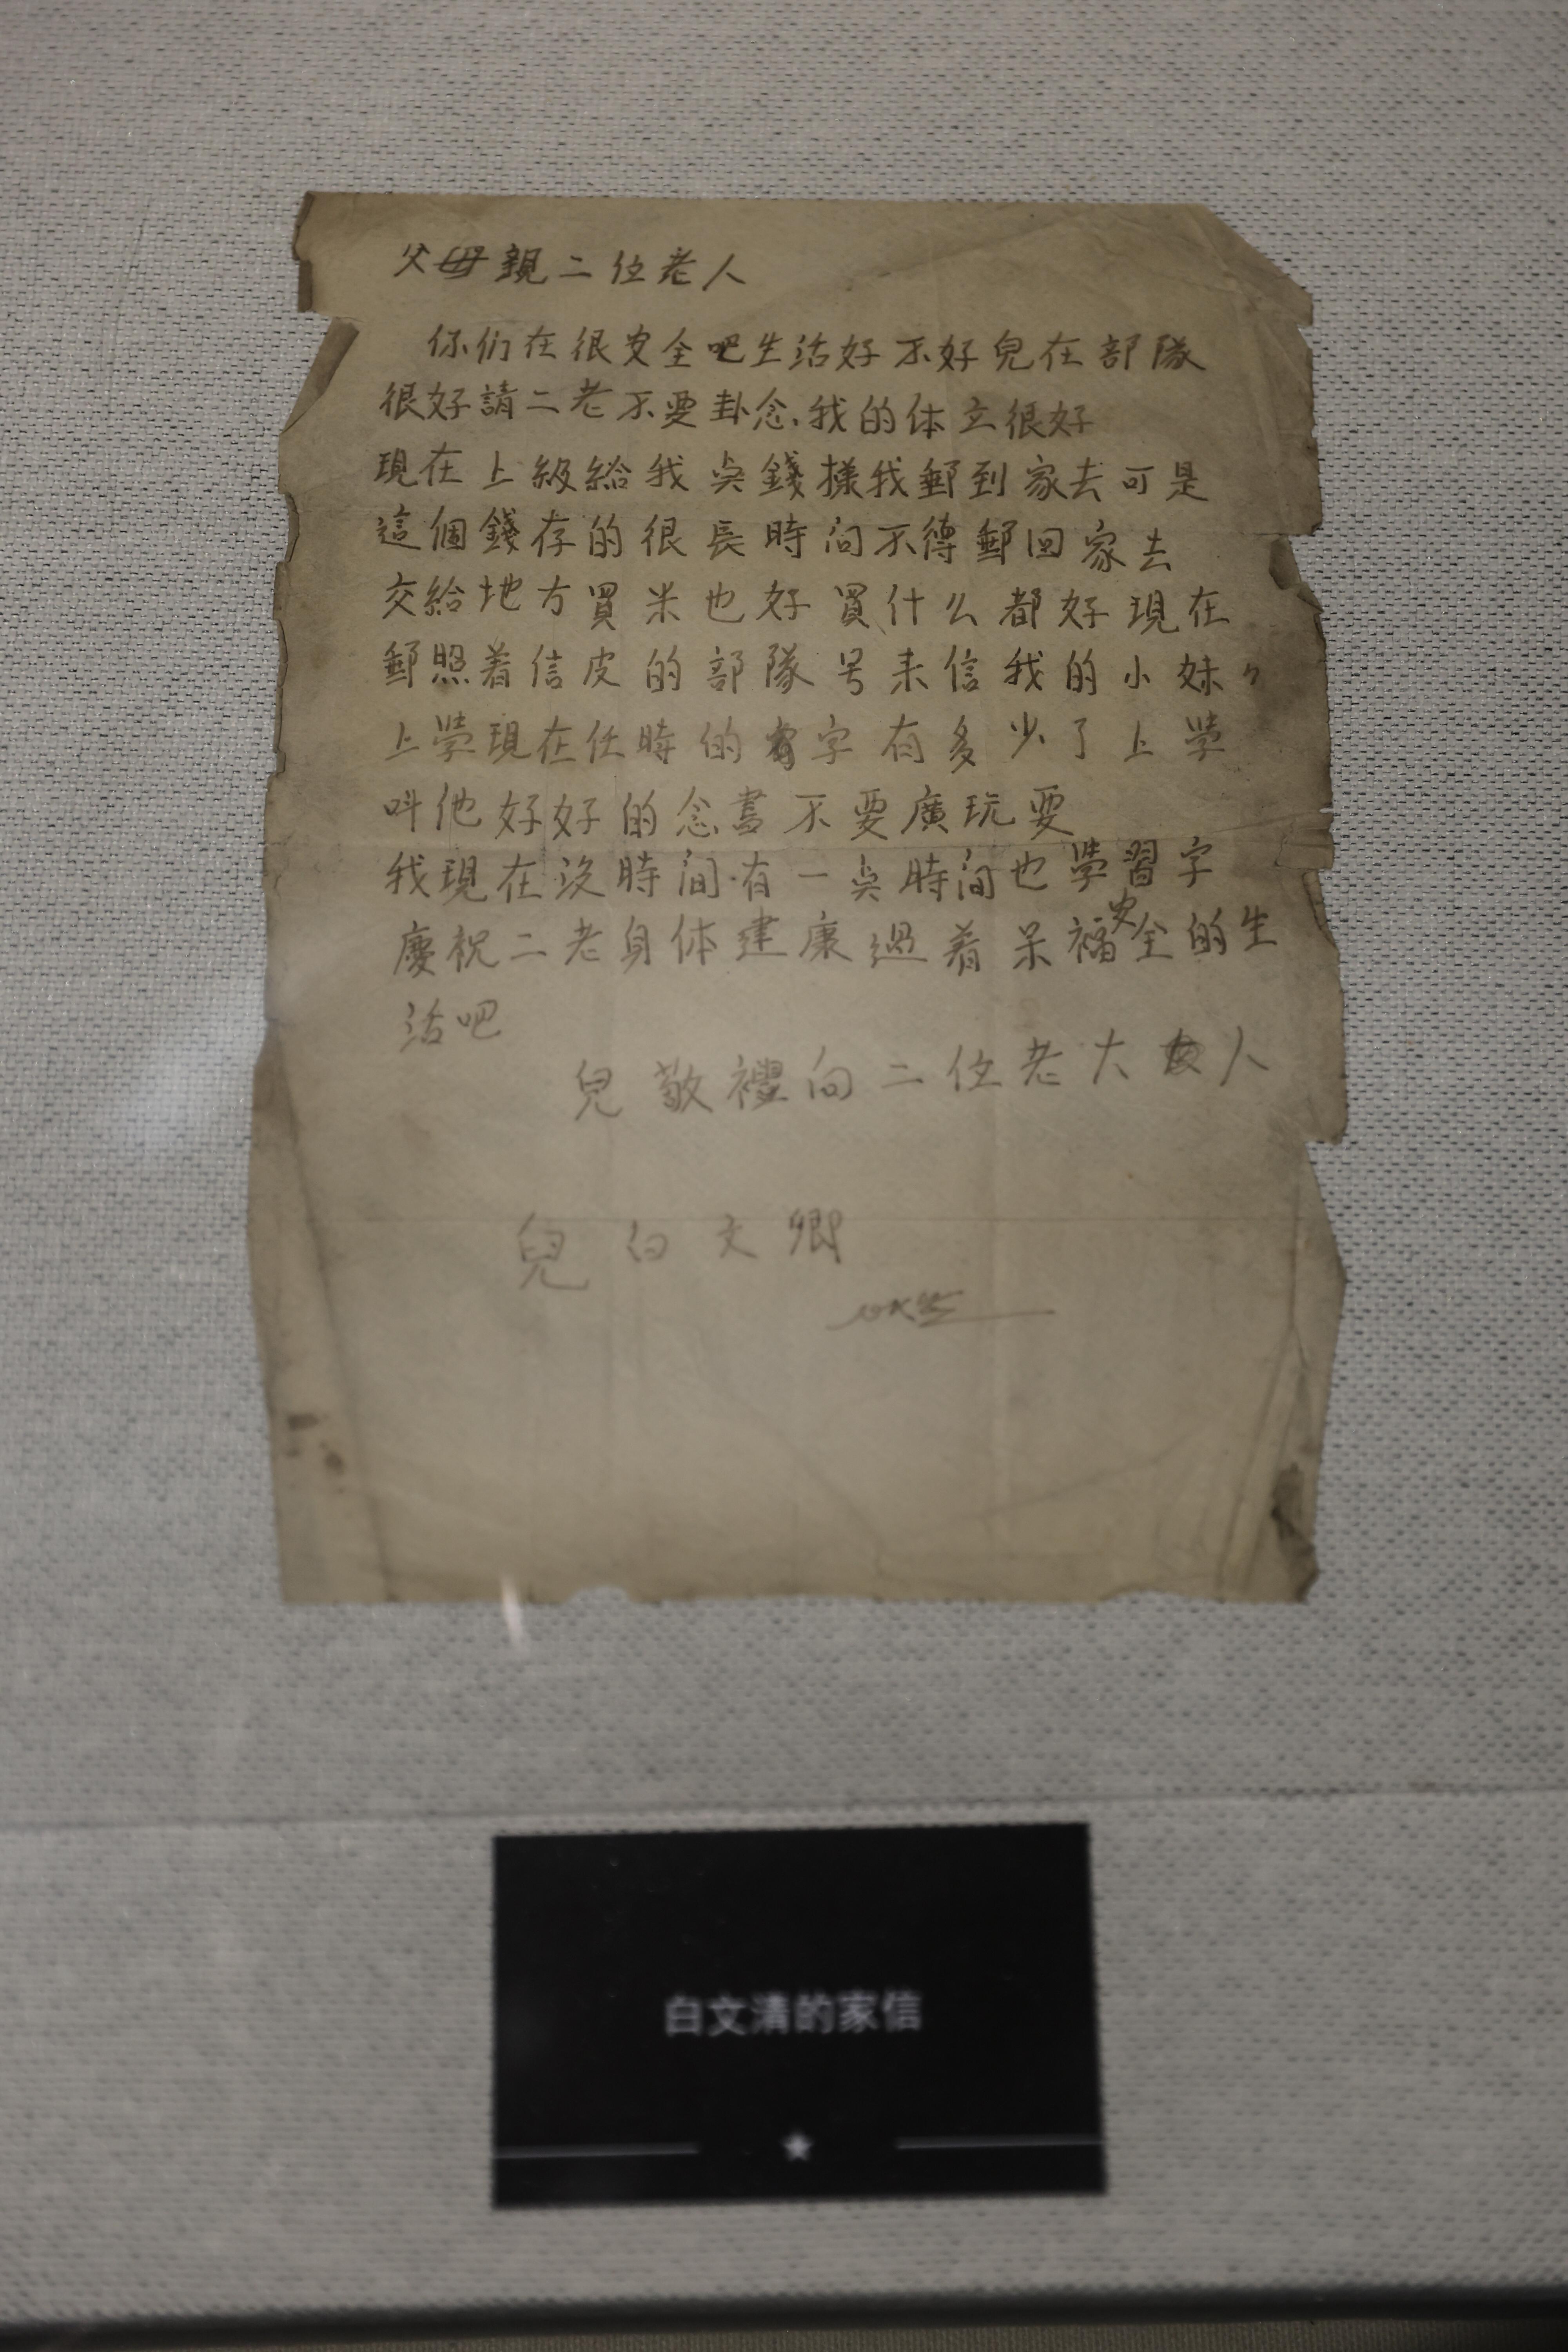 父母親二位老人
你们在很安全吧生活好不好兒在部隊
很好請二老不要卦念.我的体立很好
現在上級給我点錢樣我郵到家去可是
這個錢存的很長時间不得郵回家去
交給地方買米也好買什么都好現在
郵照着信皮的部隊号来信我的小妹々
上學現在任時的字有多少了上學
叫他好好的念書不要廣玩耍
我現在没時间有一点時间也學習字
慶祝二老身体建康過着呆福安全的生
活吧
兒敬禮向二位老大人
兒白文卿
白文清的家信